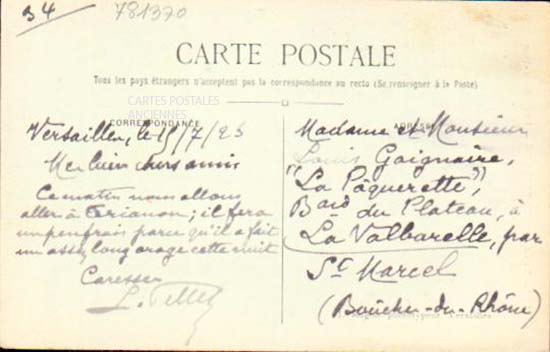 34
781370
CARTE POSTALE
Tous les pays étrangers n'acceptent pas la correspondance au recto (Se renseigner à la Poste)
CARTES POSTALES
ANCIENNES
CORRESPONDANCE
ADRESSE
Versailles, le 15/7/23
Mes bien chers amis
Ce matin nous allons
aller à Trianon; il fera
un peu frais parce qu'il a fait
un assez long orage cette nuit
Caresses
Madame et Monsieur
Louis Gaignaire,
"La Pâquerette",
Bard du Plateau, à
La Valbarelle, par
St Marcel
(Bouches-du-Rhône)